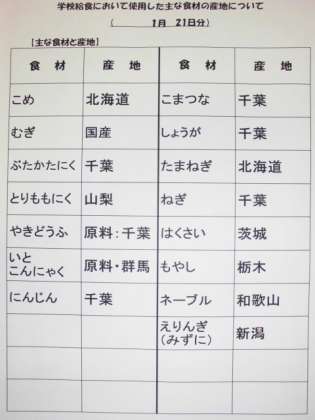 学校給食において使用した主な食材の産地について
（　　　　1月　21日分）
【主な食材と産地】
食　材　産　地　食　材　産　地
こめ　北海道　こまつな　千葉
むぎ　国産　しょうが　千葉
ぶたかたにく　千葉　たまねぎ　北海道
とりももにく　山梨　ねぎ　千葉
やきどうふ　原料：千葉　はくさい　茨城
いと
こんにゃく　原料・群馬　もやし　栃木
にんじん　千葉　ネーブル　和歌山
えりんぎ
（みずに）　新潟